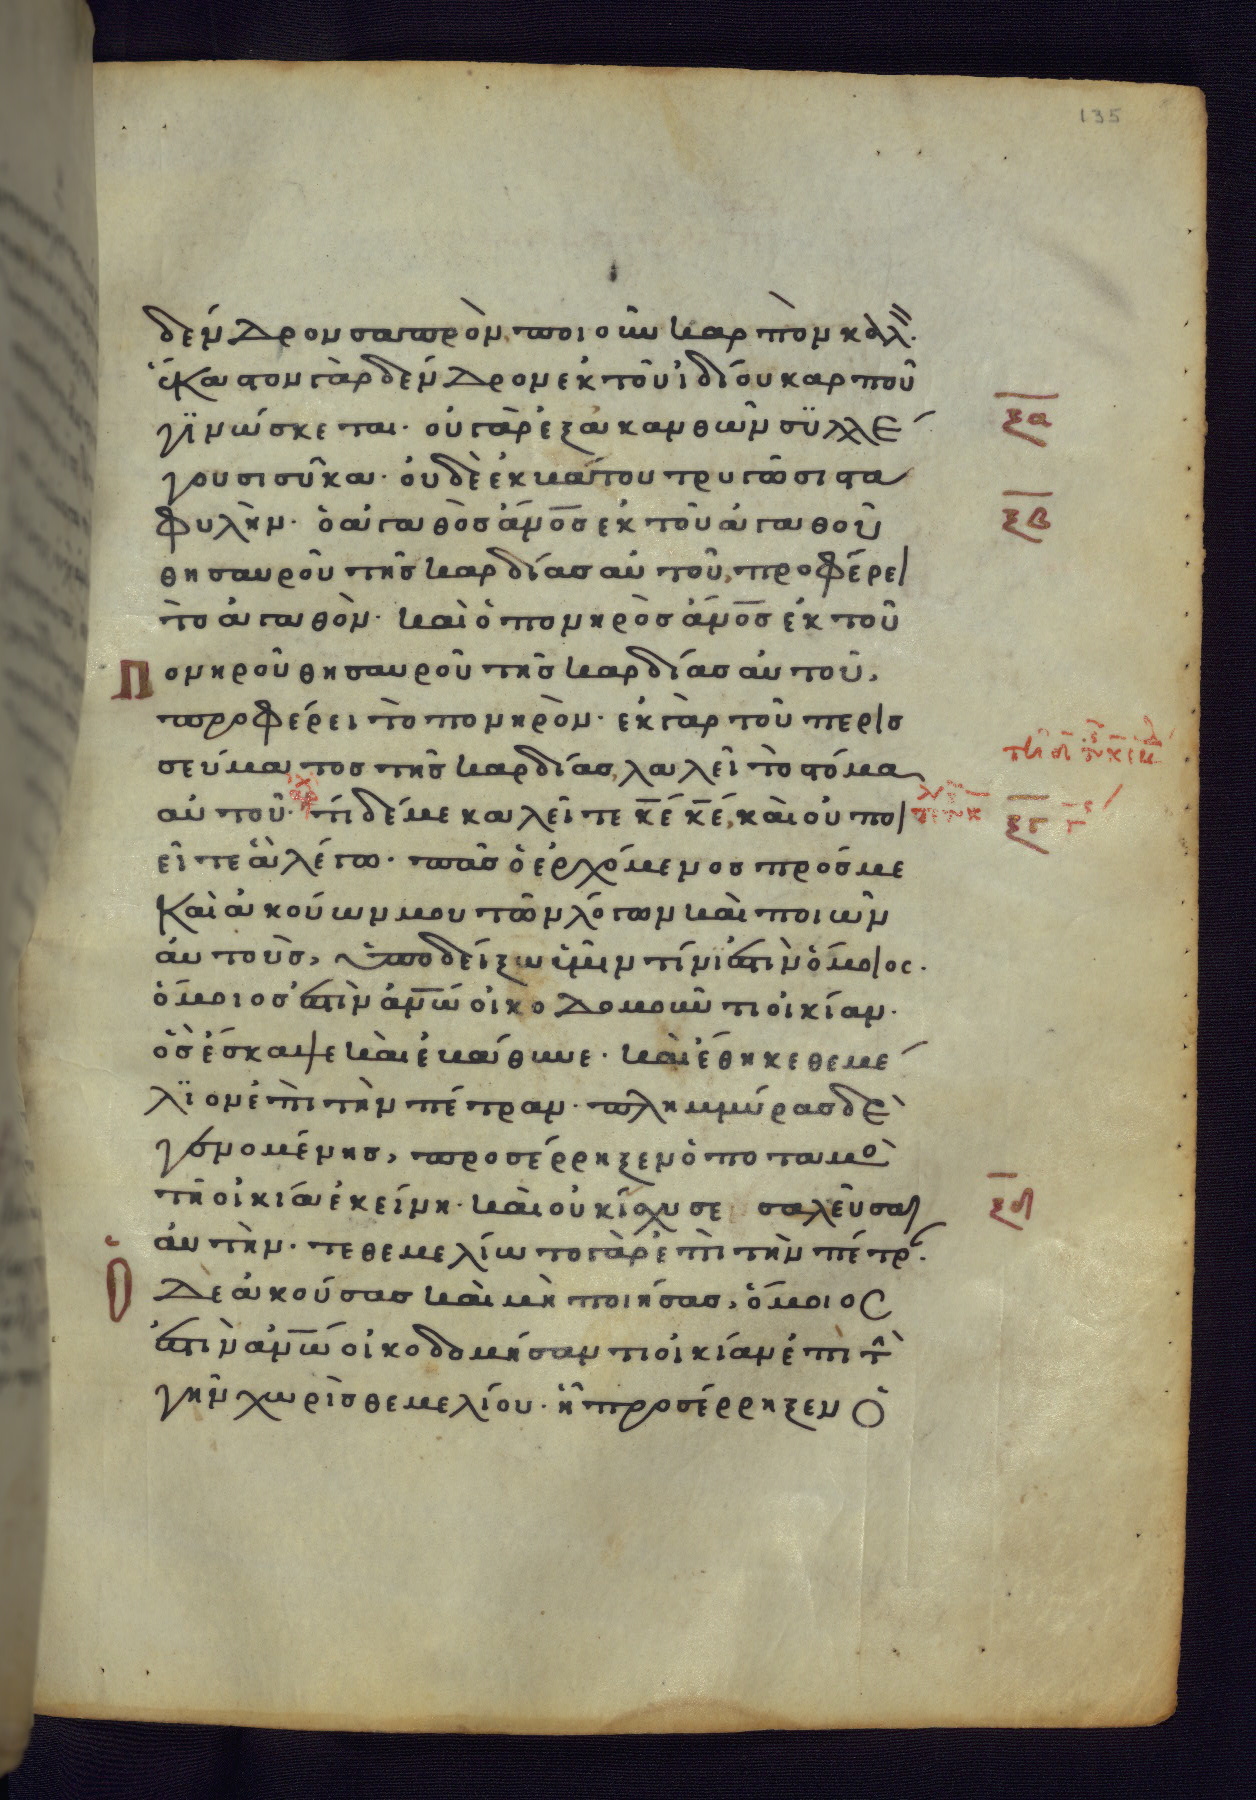 135
δένδρον σαπρὸν, ποιοῦν καρπὸν καλ.
ἕκαστον γὰρ δένδρον ἐκ τοῦ ἰδίου καρποῦ
γϊνώσκεται· οὐ γὰρ ἐξ ἀκανθῶν σϋλλέ
ξα
γουσι σῦκα· οὐδὲ ἐκ βάτου τρυγῶσι στα
φυλὴν· ὁ ἀγαθὸσ ἀν̅ο̅σ ἐκ τοῦ ἀγαθοῦ
ξβ
θησαυροῦ τῆσ καρδίασ αὐτοῦ, προφέρει
τὸ ἀγαθὸν· καὶ ὁ πονηρὸσ ἀν̅ο̅σ ἐκ τοῦ
πονηροῦ θησαυροῦ τῆσ καρδίασ αὐτοῦ,
προφέρει τὸ πονηρὸν· ἐκ γὰρ τοῦ περισ
σεύματοσ τῆσ καρδίασ, λαλεῖ τὸ στόμα
αὐτοῦ· τί δέ με καλεῖτε κ̅έ κ̅έ, καὶ οὐ ποι
ξγ
εῖτε ἃ λέγω· πᾶσ ὁ ἐρχόμενοσ πρόσ με
καὶ ἀκούων μου τῶν λόγων καὶ ποιῶν
αὐτοὺσ, ὑποδείξω ὑμῖν τίνϊ ἐστὶν ὅμοιος.
ὅμοιοσ ἐστὶν ἀν̅ω̅ οἰκοδομοῦντι οἰκίαν·
ὃσ ἔσκαψε καὶ ἐβάθυνε· καὶ ἔθηκε θεμέ
λϊον ἐπὶ τὴν πέτραν· πλημμύρασ δὲ
γενομένησ, προσέρρηξεν ὁ ποταμὸ
τῇ οἰκίᾳ ἐκείνη· καὶ οὐκ ἴσχυσε σαλεῦσαι
ξδ
αὐτὴν· τεθεμελίωτο γὰρ ἐπὶ τὴν πέτρ.
Ὁ δὲ ἀκούσασ καὶ μὴ ποιήσασ, ὅμοιος
ἐστὶν ἀν̅ω̅ οἰκοδομήσαντι οἰκίαν ἐπὶ τὴ
γῆν χωρὶσ θεμελίου· ἣ προσέρρηξεν ὁ